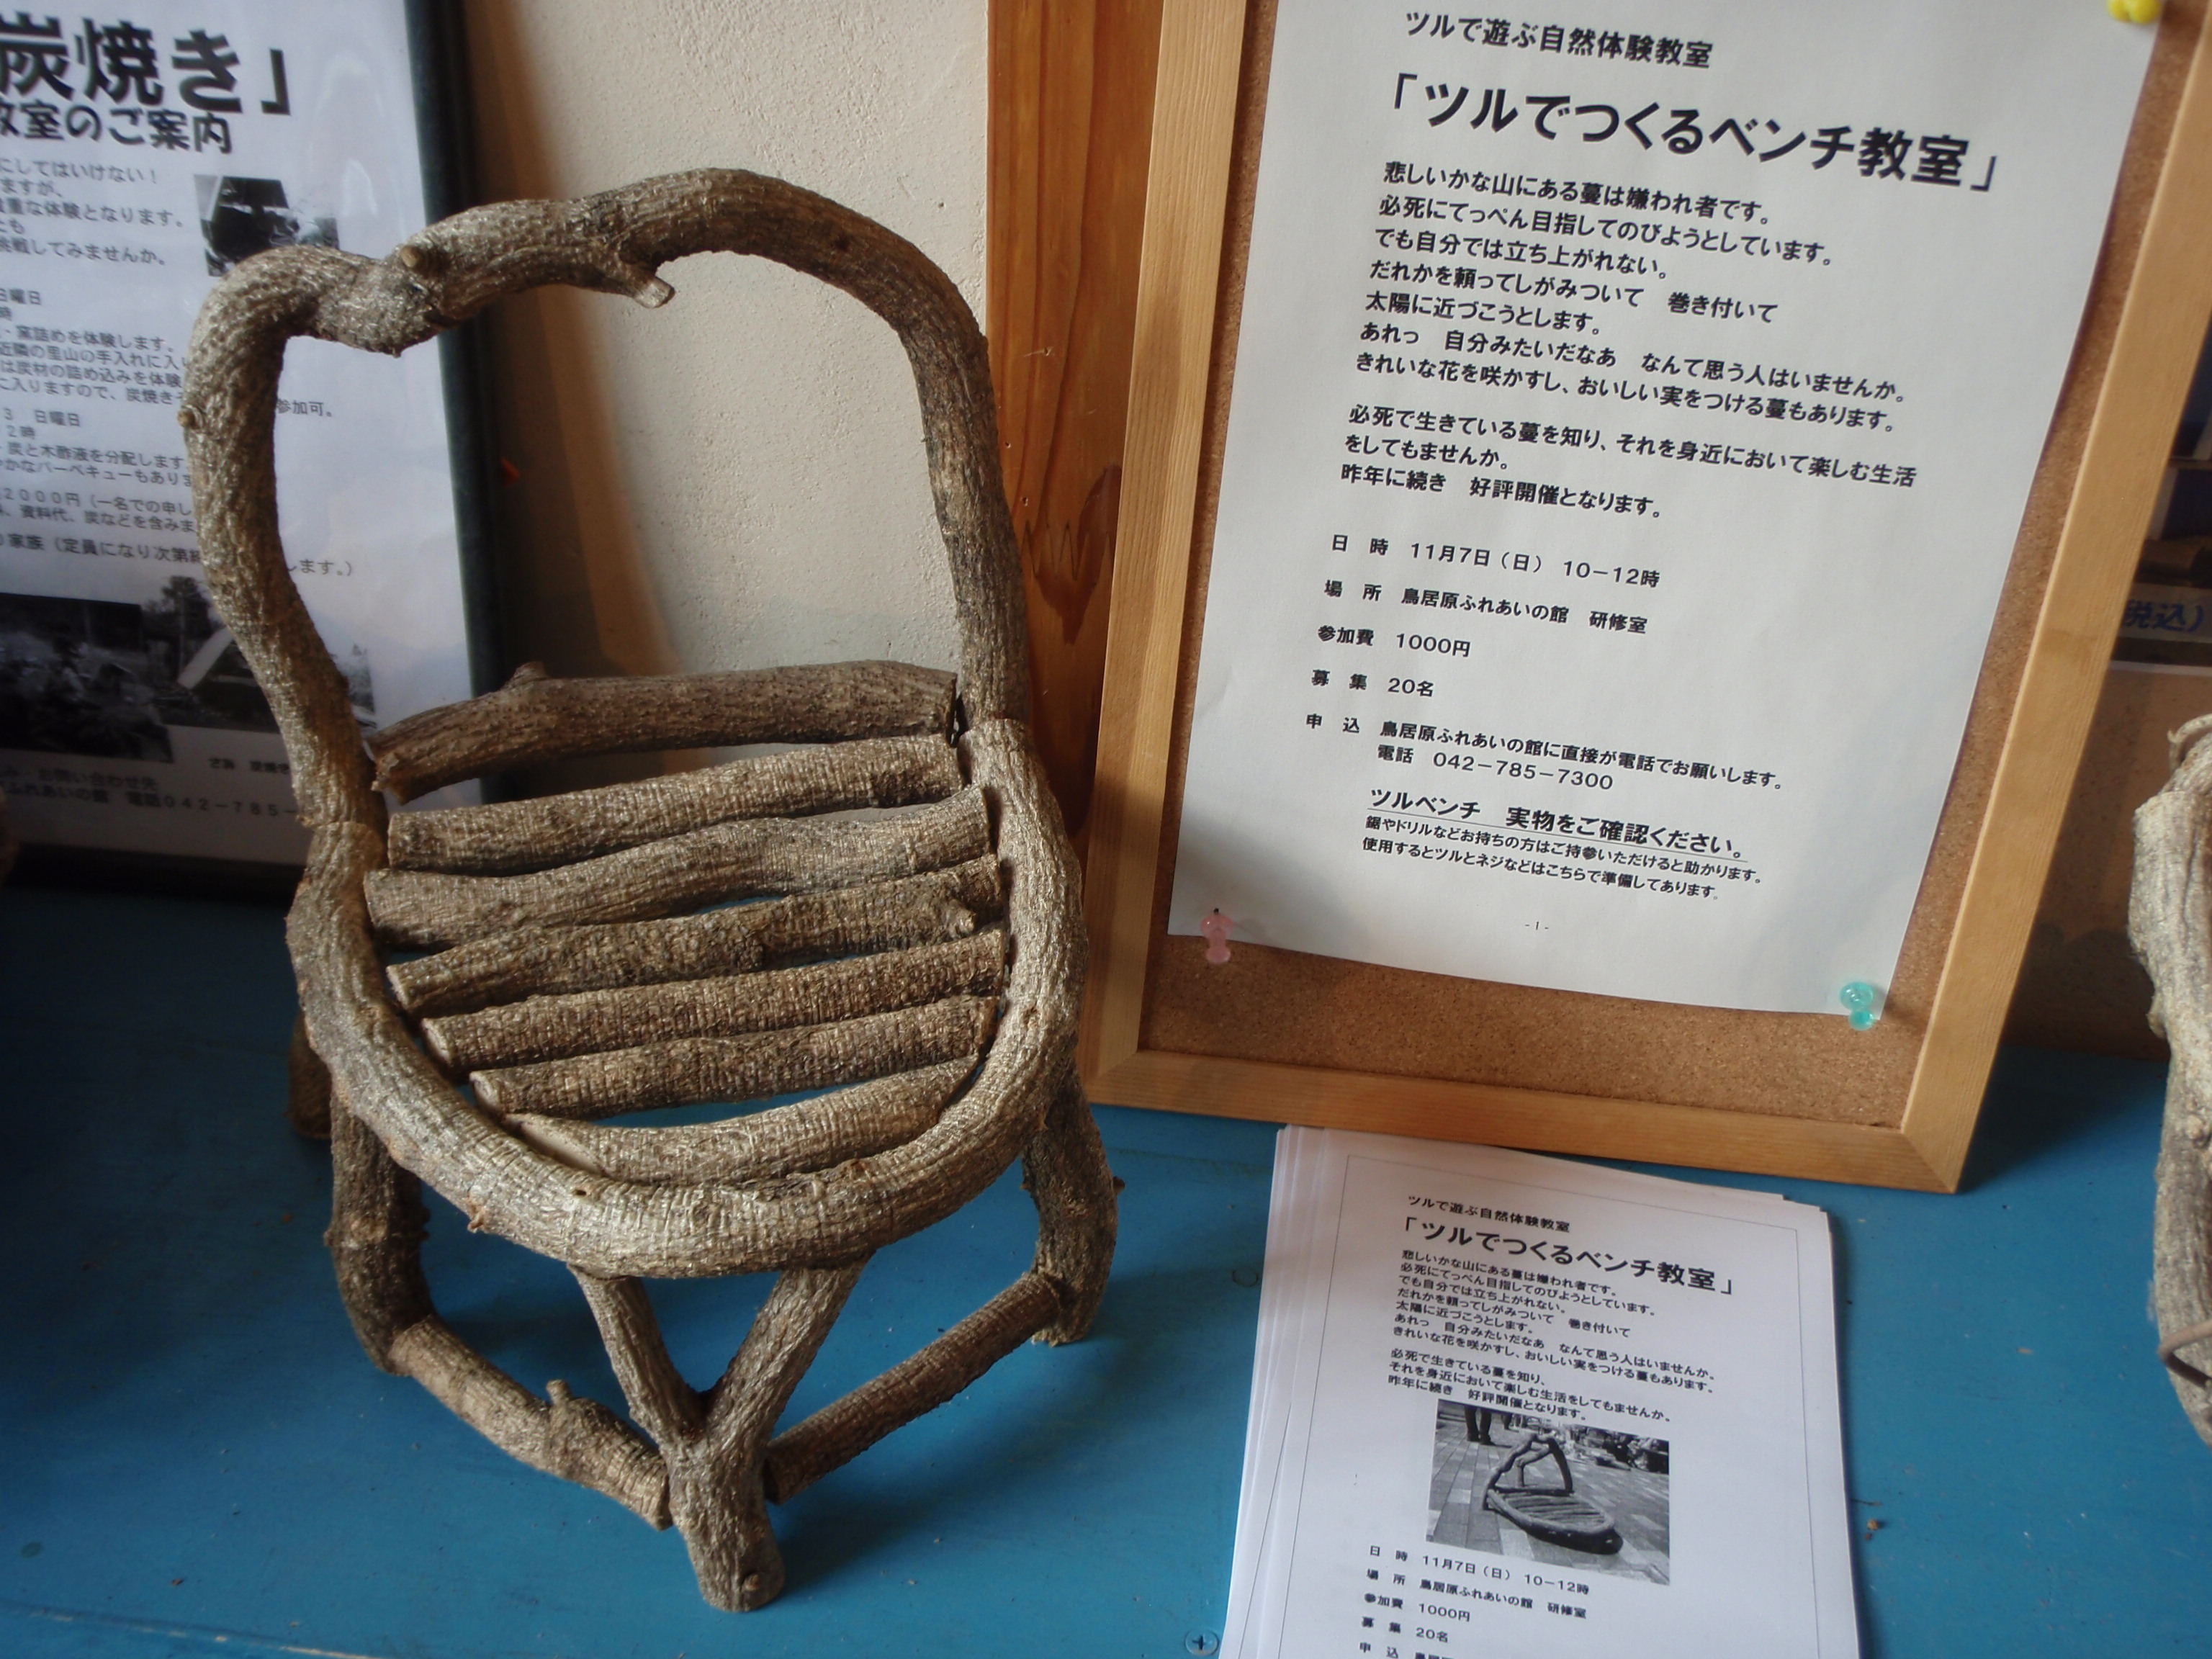 炭焼き」
教室のご案内
にしてはいけない！
ますが、
貴重な体験となります。
とも
挑戦してみませんか。
日曜日
時
・窯詰めを体験します。
近隣の里山の手入れに入り
は炭材の詰め込みを体験
に入りますので、炭焼き
参加可。
３　日曜日
２時
炭と木酢液を分配します
かなバーベキューもあります
２０００円（一名での申し
、資料代、炭などを含みま
家族（定員になり次第終
します。）
み・お問い合わせ先
ふれあいの館　電話０４２－７８５－
ツルで遊ぶ自然体験教室
「ツルでつくるベンチ教室」
悲しいかな山にある蔓は嫌われ者です。
必死にてっぺん目指してのびようとしています。
でも自分では立ち上がれない。
だれかを頼ってしがみついて　巻き付いて
太陽に近づこうとします。
あれっ　自分みたいだなあ　なんて思う人はいませんか。
きれいな花を咲かすし、おいしい実をつける蔓もあります。
必死で生きている蔓を知り、それを身近において楽しむ生活
をしてもませんか。
昨年に続き　好評開催となります。
日　時　11月7日（日）　10－12時
場　所　鳥居原ふれあいの館　研修室
参加費　1000円
募　集　20名
申　込　鳥居原ふれあいの館に直接か電話でお願いします。
電話　042－785－7300
ツルベンチ　実物をご確認ください。
鋸やドリルなどお持ちの方はご持参いただけると助かります。
使用するとツルとネジなどはこちらで準備してあります。
- 1 -
税込）
ツルで遊ぶ自然体験教室
「ツルでつくるベンチ教室」
悲しいかな山にある蔓は嫌われ者です。
必死にてっぺん目指してのびようとしています。
でも自分では立ち上がれない。
だれかを頼ってしがみついて　巻き付いて
太陽に近づこうとします。
あれっ　自分みたいだなあ　なんて思う人はいませんか。
きれいな花を咲かすし、おいしい実をつける蔓もあります。
必死で生きている蔓を知り、
それを身近において楽しむ生活をしてもませんか。
昨年に続き　好評開催となります。
日　時　11月7日（日）　10－12時
場　所　鳥居原ふれあいの館　研修室
参加費　1000円
募　集　20名
申　込　鳥居原ふれあいの館